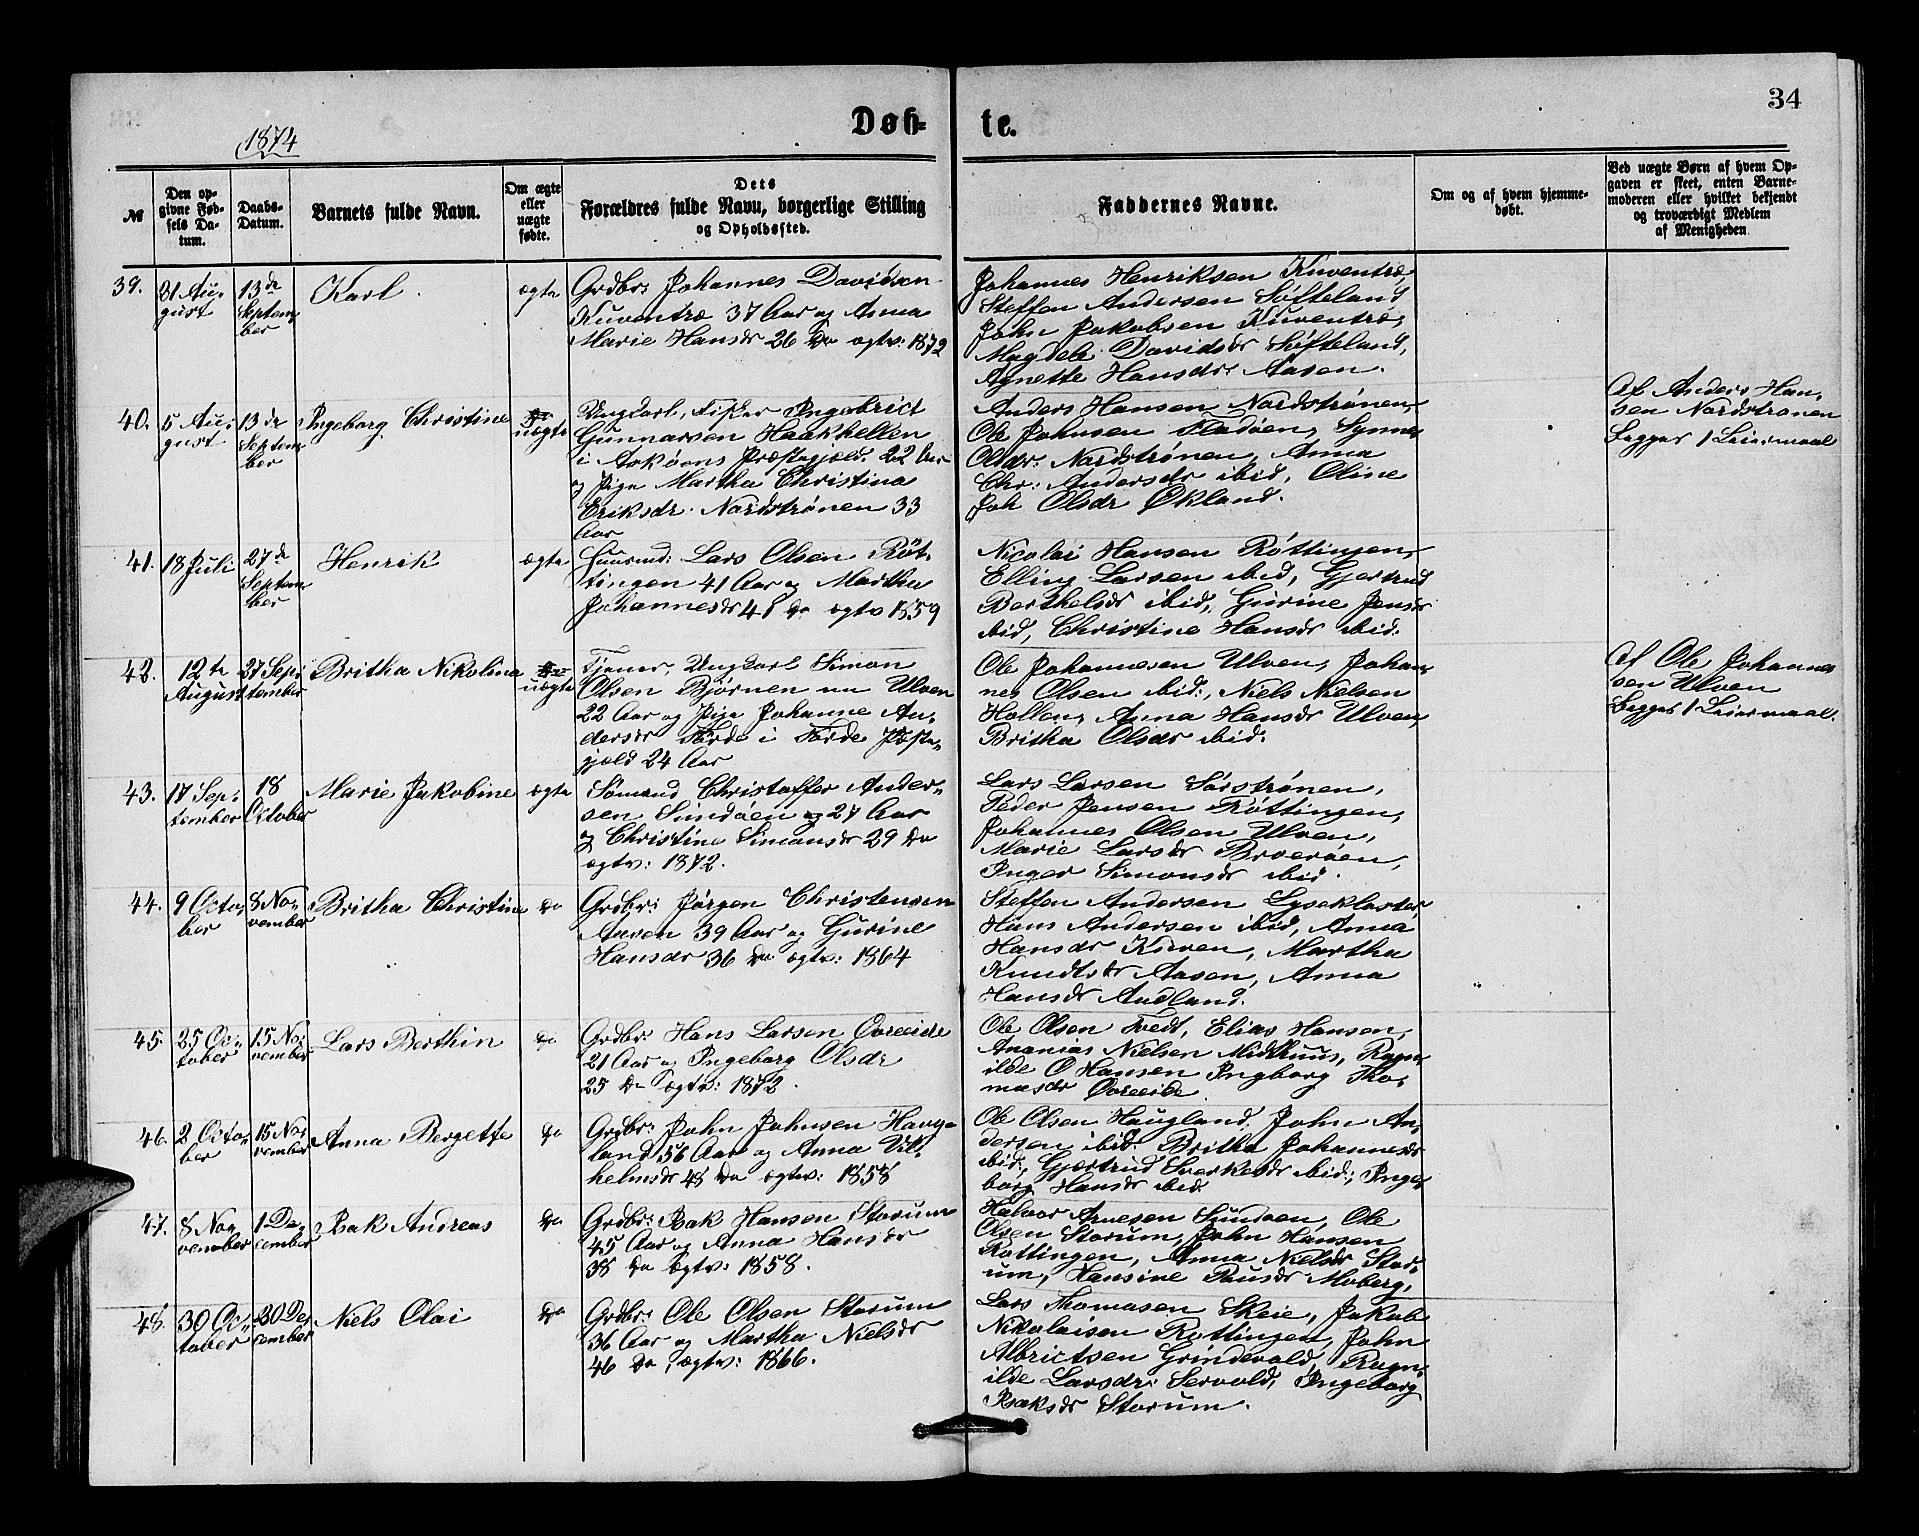 34
Døb-
te.
1874
№
Den op-
givne Fød-
sels Da-
tum.
Daabs-
Datum.
Barnets fulde Navn.
Om ægte
eller
uægte
fødte.
Dets
Forældres fulde Navn, borgerlige Stilling
og Opholdssted.
Faddernes Navne.
Om og af hvem hjemme-
døbt.
Ved uægte Børn af hvem Op-
gaven er skeet, enten Barne-
moderen eller hvilket bekjendt
og troværdigt Medlem
af Menigheden
39.
31 Au-
gust
13de
Septem-
ber
Karl.
ægte
Grdbr: Johannes Davidsen
Kuventræ 37 Aar og Anna
Marie Hansdr 26 Do ægtv: 1872
Johannes Henriksen Kuventræ,
Steffen Andersen Søfteland,
John Jakobsen Kuventræ,
Magdele Davidsdr Søfteland,
Agnette Hansdr: Aasen.
40.
5 Au-
gust
13de
Septem-
ber
Ingeborg Christine
uægte
Ungkarl, Fisker Ingebrict
Gunnarsen Haakhellen
i Askøens Præstegjeld: 22 Aar
og Pige Martha Christina
Eriksdr. Nordstrønen 33
Aar
Anders Hansen Nordstrønen,
Ole Johnsen Fladøen, Synne
Olsdr: Nordstrønen, Anna
Chr: Andersdr ibid, Oline
Joh Olsdr Økland.
Af Anders Han-
sen Nordstrønen
Begges 1 Leiermaal
41.
18 Juli
27de
Septem-
ber
Henrik
ægte
Huusmd: Lars Olsen Røt-
tingen 41 Aar og Martha
Johannesdr 41 Do ægtv 1859
Nicolai Hansen Røttingen,
Elling Larsen ibid, Gjertrud
Berthelsdr ibid, Gurine Jensdr
ibid, Christine Hansdr ibid:
42.
12te
August
27 Sep-
tember
Britha Nikolina
uægte
Tjener, Ungkarl Simon
Olsen Bjørnen nu Ulven
22 Aar og Pige Johanne An-
dersdr Førde i Førde Præste-
gjeld 24 Aar
Ole Johannesen Ulven, Johan-
nes Olsen ibid:, Niels Nielsen
Hollen, Anna Hansdr Ulven,
Britha Olsdr ibid:
Af Ole Johannes
sen Ulven
Begges 1 Leiermaal.
43.
17 Sep-
tember
18
October
Marie Jakobine
ægte
Sømand Christoffer Ander-
sen Sundøen og 27 Aar
og Christine Simonsdr 29 Do
ægtv: 1872.
Lars Larsen Sørstrønen,
Peder Jensen Røttingen,
Johannes Olsen Ulven,
Marie Larsdr Broerøen,
Inger Simonsdr ibid.
44.
9 Octo-
ber
8 No-
vember
Britha Christine
do
Grdbr: Jørgen Christensen
Aaven 39 Aar og Gurine
Hansdr 36 Do ægtv: 1864
Steffen Andersen Lyseklaster,
Hans Andersen ibid, Anna
Hansdr Kuven, Martha
Knudtsdr Aasen, Anna
Hansdr Audland.
45.
25 Oc-
tober
15 No-
vember
Lars Berthin
do
Grdbr: Hans Larsen Øvreeide
21 Aar og Ingeborg Olsdr
25 Do ægtv: 1872.
Ole Olsen Tvedt, Elias Hansen,
Ananias Nielsen Midthuus, Ragn-
ilde O Hansen Ingborg Tho-
masdr Øvreeide
46.
2 Octo-
ber
15 No-
vember
Anna Bergette
do
Grdbr: John Johnsen Haug-
land 56 Aar og Anna Vil-
helmsdr 48 Do ægtv: 1858
Ole Olsen Haugland, John An-
dersen ibid: Britha Johannesdr
ibid:, Gjertrud Sverkesdr ibid:, Inge-
borg Hansdr ibid
47.
8 No-
vember
1 De-
cember
Isak Andreas
do
Grdbr: Isak Hansen Storum
45 Aar og Anna Hansdr
38 Do ægtv: 1858.
Halvor Arnesen Sundøen, Ole
Olsen Storum, John Hansen
Røttingen, Anna Nielsdr Stor-
um, Hansine Pausdr Moberg,
48.
30 Oc-
tober
20 De-
cember
Niels Olai
do
Grdbr: Ole Olsen Storum
36 Aar og Martha Nielsdr
46 Do ægtv: 1866.
Lars Thomasen Skeie, Jakob
Nikolaisen Røttingen, John
Albrictsen Grindevold, Ragn-
ilde Larsdr: Servold, Ingeborg
Isaksdr Storum.